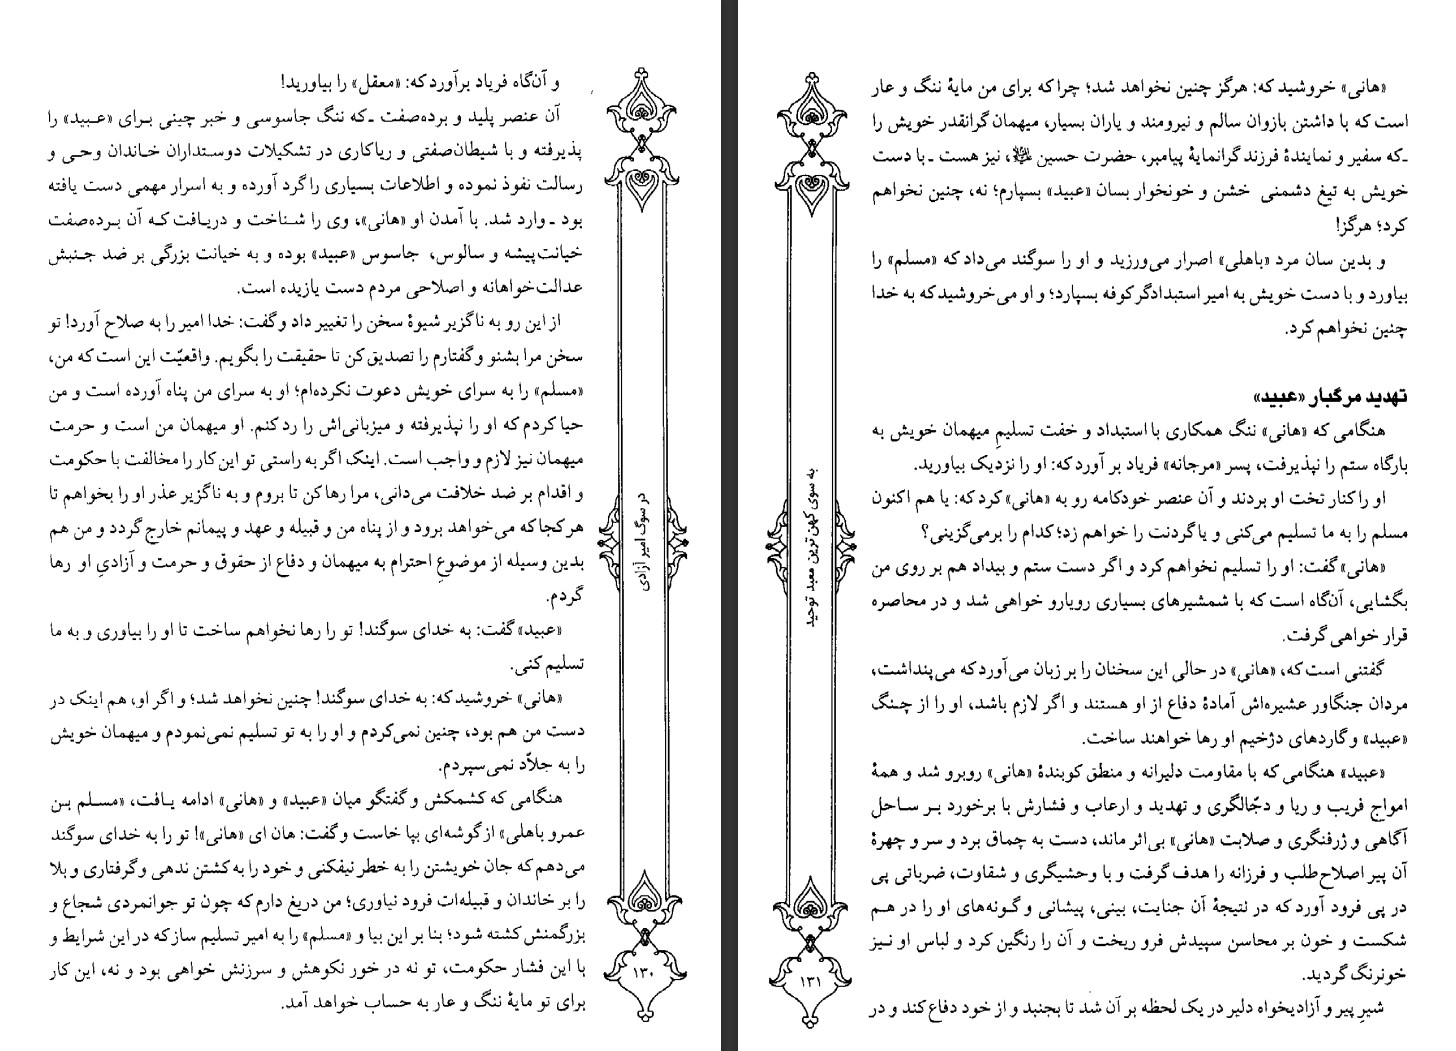 و آن‌گاه فریاد برآورد که: «معقل» را بیاورید!
آن عنصر پلید و برده‌صفت ـ که ننگ جاسوسی و خبر چینی بـرای «عـبید» را
پذیرفته و با شیطان‌صفتی و ریاکاری در تشکیلات دوستداران خـاندان وحـی و
رسالت نفوذ نموده و اطلاعات بسیاری را گرد آورده و به اسرار مهمی دست یافته
بود ـ وارد شد. با آمدن او «هانی»، وی را شـناخت و دریـافت کـه آن بـرده‌صفت
خیانت‌پیشه و سالوس، جاسوس «عبید» بوده و به خیانت بزرگی بر ضد جـنبش
عدالت‌خواهانه و اصلاحی مردم دست یازیده است.
از این رو به ناگزیر شیوهٔ سخن را تغییر داد و گفت: خدا امیر را به صلاح آورد! تو
سخن مرا بشنو و گفتارم را تصدیق کن تا حقیقت را بگویم. واقعیّت این است که من،
«مسلم» را به سرای خویش دعوت نکرده‌ام؛ او به سرای من پناه آورده است و من
حیا کردم که او را نپذیرفته و میزبانی‌اش را رد کنم. او میهمان من است و حرمت
میهمان نیز لازم و واجب است. اینک اگر به راستی تو این کار را مخالفت با حکومت
و اقدام بر ضد خلافت می‌دانی، مرا رها کن تا بروم و به ناگزیر عذر او را بخواهم تا
هر کجا که می‌خواهد برود و از پناه من و قبیله و عهد و پیمانم خارج گردد و من هم
بدین وسیله از موضوعِ احترام به میهمان و دفاع از حقوق و حرمت و آزادیِ او رها
گردم.
«عبید» گفت: به خدای سوگند! تو را رها نخواهم ساخت تا او را بیاوری و به ما
تسلیم کنی.
«هانی» خروشید که: به خدای سوگند! چنین نخواهد شد؛ و اگر او، هم اینک در
دست من هم بود، چنین نمی‌کردم و او را به تو تسلیم نمی‌نمودم و میهمان خویش
را به جلاّد نمی‌سپردم.
هنگامی که کشمکش و گفتگو میان «عبید» و «هانی» ادامه یـافت، «مسـلم بـن
عمرو باهلی» از گوشه‌ای بپا خاست و گفت: هان ای «هانی»! تو را به خدای سوگند
می‌دهم که جان خویشتن را به خطر نیفکنی و خود را به کشتن ندهی و گرفتاری و بلا
را بر خاندان و قبیله‌ات فرود نیاوری؛ من دریغ دارم که چون تو جوانمردی شجاع و
بزرگمنش کشته شود؛ بنا بر این بیا و «مسلم» را به امیر تسلیم ساز که در این شرایط و
با این فشار حکومت، تو نه در خور نکوهش و سرزنش خواهی بود و نه، این کار
برای تو مایهٔ ننگ و عار به حساب خواهد آمد.
در سوگ امیر آزادی
۱۳۰
«هانی» خروشید که: هرگز چنین نخواهد شد؛ چرا که برای من مایهٔ ننگ و عار
است که با داشتن بازوان سالم و نیرومند و یاران بسیار، میهمان گرانقدر خویش را
ـ که سفیر و نمایندهٔ فرزند گرانمایهٔ پیامبر، حضرت حسین ﷺ، نیز هست ـ با دست
خویش به تیغ دشمنی خشن و خونخوار بسان «عبید» بسپارم؛ نه، چنین نخواهم
کرد؛ هرگز!
و بدین سان مرد «باهلی» اصرار می‌ورزید و او را سوگند می‌داد که «مسلم» را
بیاورد و با دست خویش به امیر استبدادگر کوفه بسپارد؛ و او می‌خروشید که به خدا
چنین نخواهم کرد.
تهدید مرگبار «عبید»
هنگامی که «هانی» ننگ همکاری با استبداد و خفت تسلیمِ میهمان خویش به
بارگاه ستم را نپذیرفت، پسر «مرجانه» فریاد بر آورد که: او را نزدیک بیاورید.
او را کنار تخت او بردند و آن عنصر خودکامه رو به «هانی» کرد که: یا هم اکنون
مسلم را به ما تسلیم می‌کنی و یا گردنت را خواهم زد؛ کدام را برمی‌گزینی؟
«هانی» گفت: او را تسلیم نخواهم کرد و اگر دست ستم و بیداد هم بر روی من
بگشایی، آن‌گاه است که با شمشیرهای بسیاری رویارو خواهی شد و در محاصره
قرار خواهی گرفت.
گفتنی است که، «هانی» در حالی این سخنان را بر زبان می‌آورد که می‌پنداشت،
مردان جنگاور عشیره‌اش آمادهٔ دفاع از او هستند و اگر لازم باشد، او را از چـنگ
«عبید» و گاردهای دژخیم او رها خواهند ساخت.
«عبید» هنگامی که با مقاومت دلیرانه و منطق کوبندهٔ «هانی» روبرو شد و همهٔ
امواج فریب و ریا و دجّالگری و تهدید و ارعاب و فشارش با برخورد بـر سـاحل
آگاهی و ژرفنگری و صلابت «هانی» بی‌اثر ماند، دست به چماق برد و سر و چهرهٔ
آن پیر اصلاح‌طلب و فرزانه را هدف گرفت و با وحشیگری و شقاوت، ضرباتی پی
در پی فرود آورد که در نتیجهٔ آن جنایت، بینی، پیشانی و گونه‌های او را در هـم
شکست و خون بر محاسن سپیدش فرو ریخت و آن را رنگین کرد و لباس او نـیز
خونرنگ گردید.
شیرِ پیر و آزادیخواه دلیر در یک لحظه بر آن شد تا بجنبد و از خود دفاع کند و در
به سوی کهن ترین معبد توحید
۱۳۱